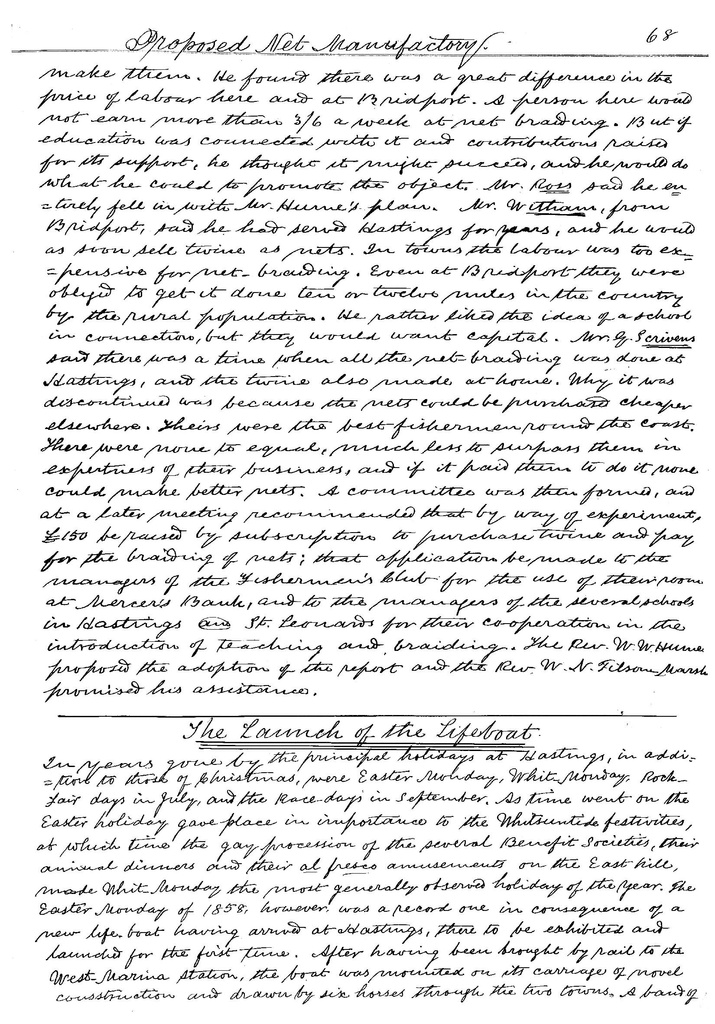 Proposed Net Manufactory. 68
make them. He found there was a great difference in the
price of labour here and at Bridport. A person here would
not earn more than 3/6 a week at net braiding. But if
education was connected with it and contributions raised
for its support, he thought it might succeed, and he would do
what he could to promote the object. Mr. Ross said he en
=tirely fell in with Mr. Hume's plan. Mr. Witham, from
Bridport, said he had served Hastings for years, and he would
as soon sell twine as nets. In towns the labour was too ex=
=pensive for net-braiding. Even at Bridport they were
obliged to get it done ten or twelve miles in the country
by the rural population. He rather liked the idea of a school
in connection, but they would want capital. Mr. G. Scrivens
said there was a time when all the net-braiding was done at
Hastings, and the twine also made at home. Why it was
discontinued was because the nets could be purchased cheaper
elsewhere. Theirs were the best fishermen round the coast.
There were none to equal, much less to surpass them in
expertness of their business, and if it paid them to do it none
could make better nets. A committee was then formed, and
at a later meeting recommended that by way of experiment,
£150 be raised by subscription to purchase twine and pay
for the braiding of nets; that application be made to the
managers of the Fishermen's Club for the use of their room
at Mercer's Bank, and to the managers of the several schools
in Hastings and St. Leonards for their co-operation in the
introduction of teaching and braiding. The Rev. W. W. Hume
proposed the adoption of the report and the Rev. W. N. Tilson-Marsh
promised his assistance.
The Launch of the Lifeboat
In years gone by the principal holidays at Hastings, in addi-
=tion to those of Christmas, were Easter Monday, Whit-Monday, Rock-
Fair days in July, and the Race-days in September. As time went on the
Easter holiday gave place in importance to the Whitsuntide festivities,
at which time the gay procession of the several Benefit Societies, their
annual dinners and their al fresco amusements on the East hill,
made Whit Monday the most generally observed holiday of the year. The
Easter Monday of 1858, however, was a record one in consequence of a
new life-boat having arrived at Hastings, there to be exhibited and
launched for the first time. After having been brought by rail to the
West-Marina Station, the boat was mounted on its carriage of novel
consstruction and drawn by six horses through the two towns. A band of